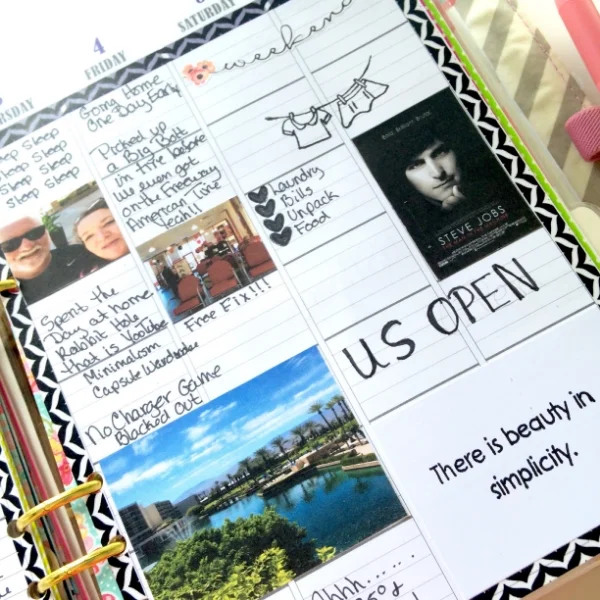 4
FRIDAY
SATURDAY
Sleep Sleep
Sleep Sleep
Sleep Sleep
Sleep Sleep
Spent the
Day at home
Rabbit Hole
that is YouTube
Minimalism
Capsule Wardrobe
No Charger Game
Blacked Out
Going Home
One Day Early
Picked up
a Big Bolt
in tire before
We even got
on the Freeway
American Tire
Yeah!!
Free Fix!!!
weekend
Laundry
Bills
Unpack
Food
STEVE JOBS
US OPEN
There is beauty in
simplicity.